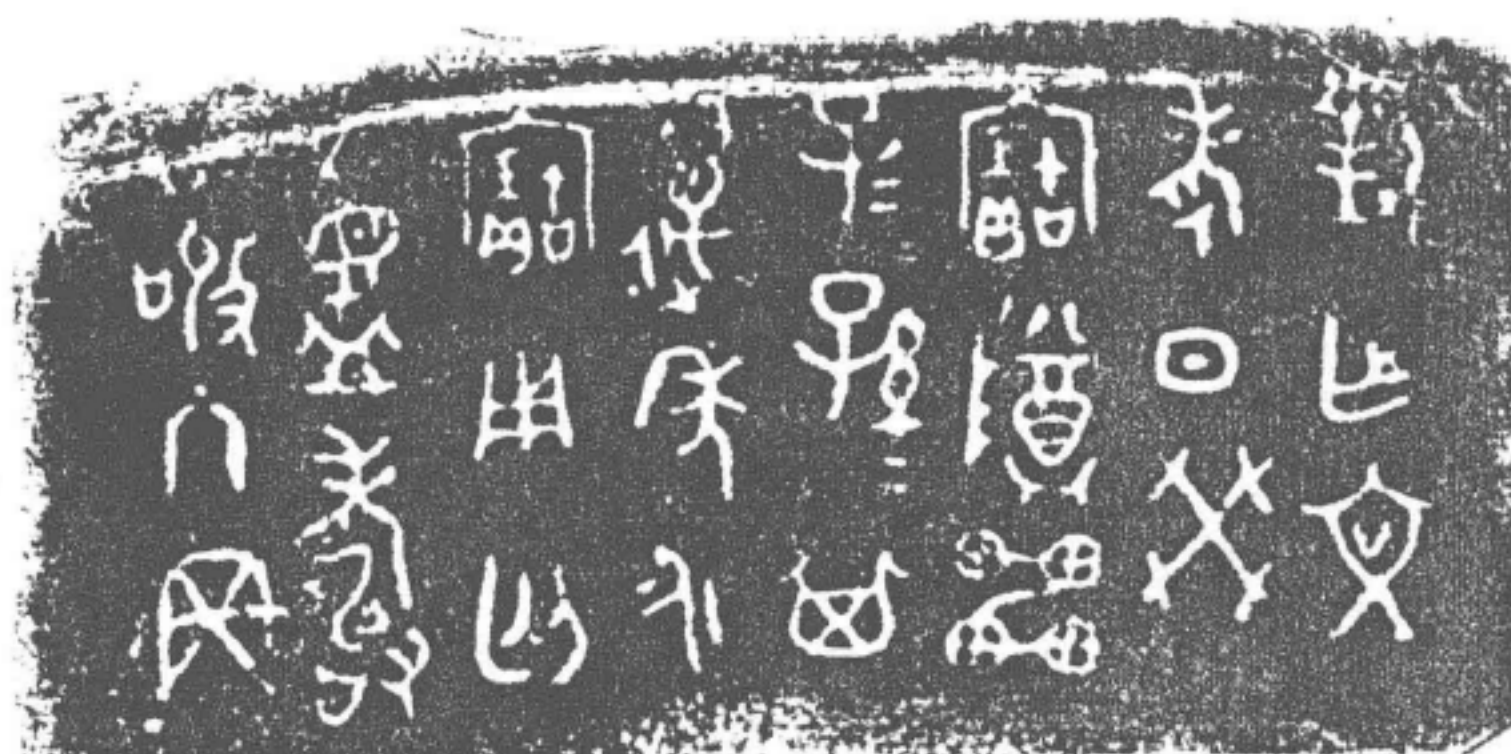 對乍文
考日癸
寶尊罍
子=孫=其
萬年永
寶用匄
眉壽
敬冬